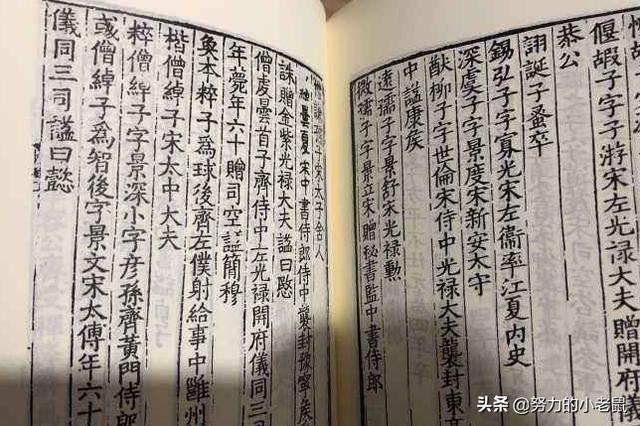 偃嘏子字子游宋左光祿大夫贈開府儀
恭公
詡誕子蚤卒
錫弘子字寡光宋左衞率江夏內史
深虞子字景度宋新安太守
猷柳子字世倫宋侍中光祿大夫襲封東
中諡康矦
遠孺子字景舒宋光祿勳
微孺子字景立宋贈秘書監中書侍郎
子宋太子舍人
夏宋中書侍郎侍中襲封豫寧矦
誅贈金紫光祿大夫諡曰愍
僧虔曇首子齊侍中左光祿開府儀同三司
年薨年六十贈司空諡簡穆
奐本粹子爲球後齊左僕射給事中雝州
楷僧綽子宋太中大夫
粹僧綽子字景深小字彥孫齊黃門侍郎
或僧綽子爲智後字景文宋太傅年六十
儀同三司諡曰懿
头条 @努力的小老鼠